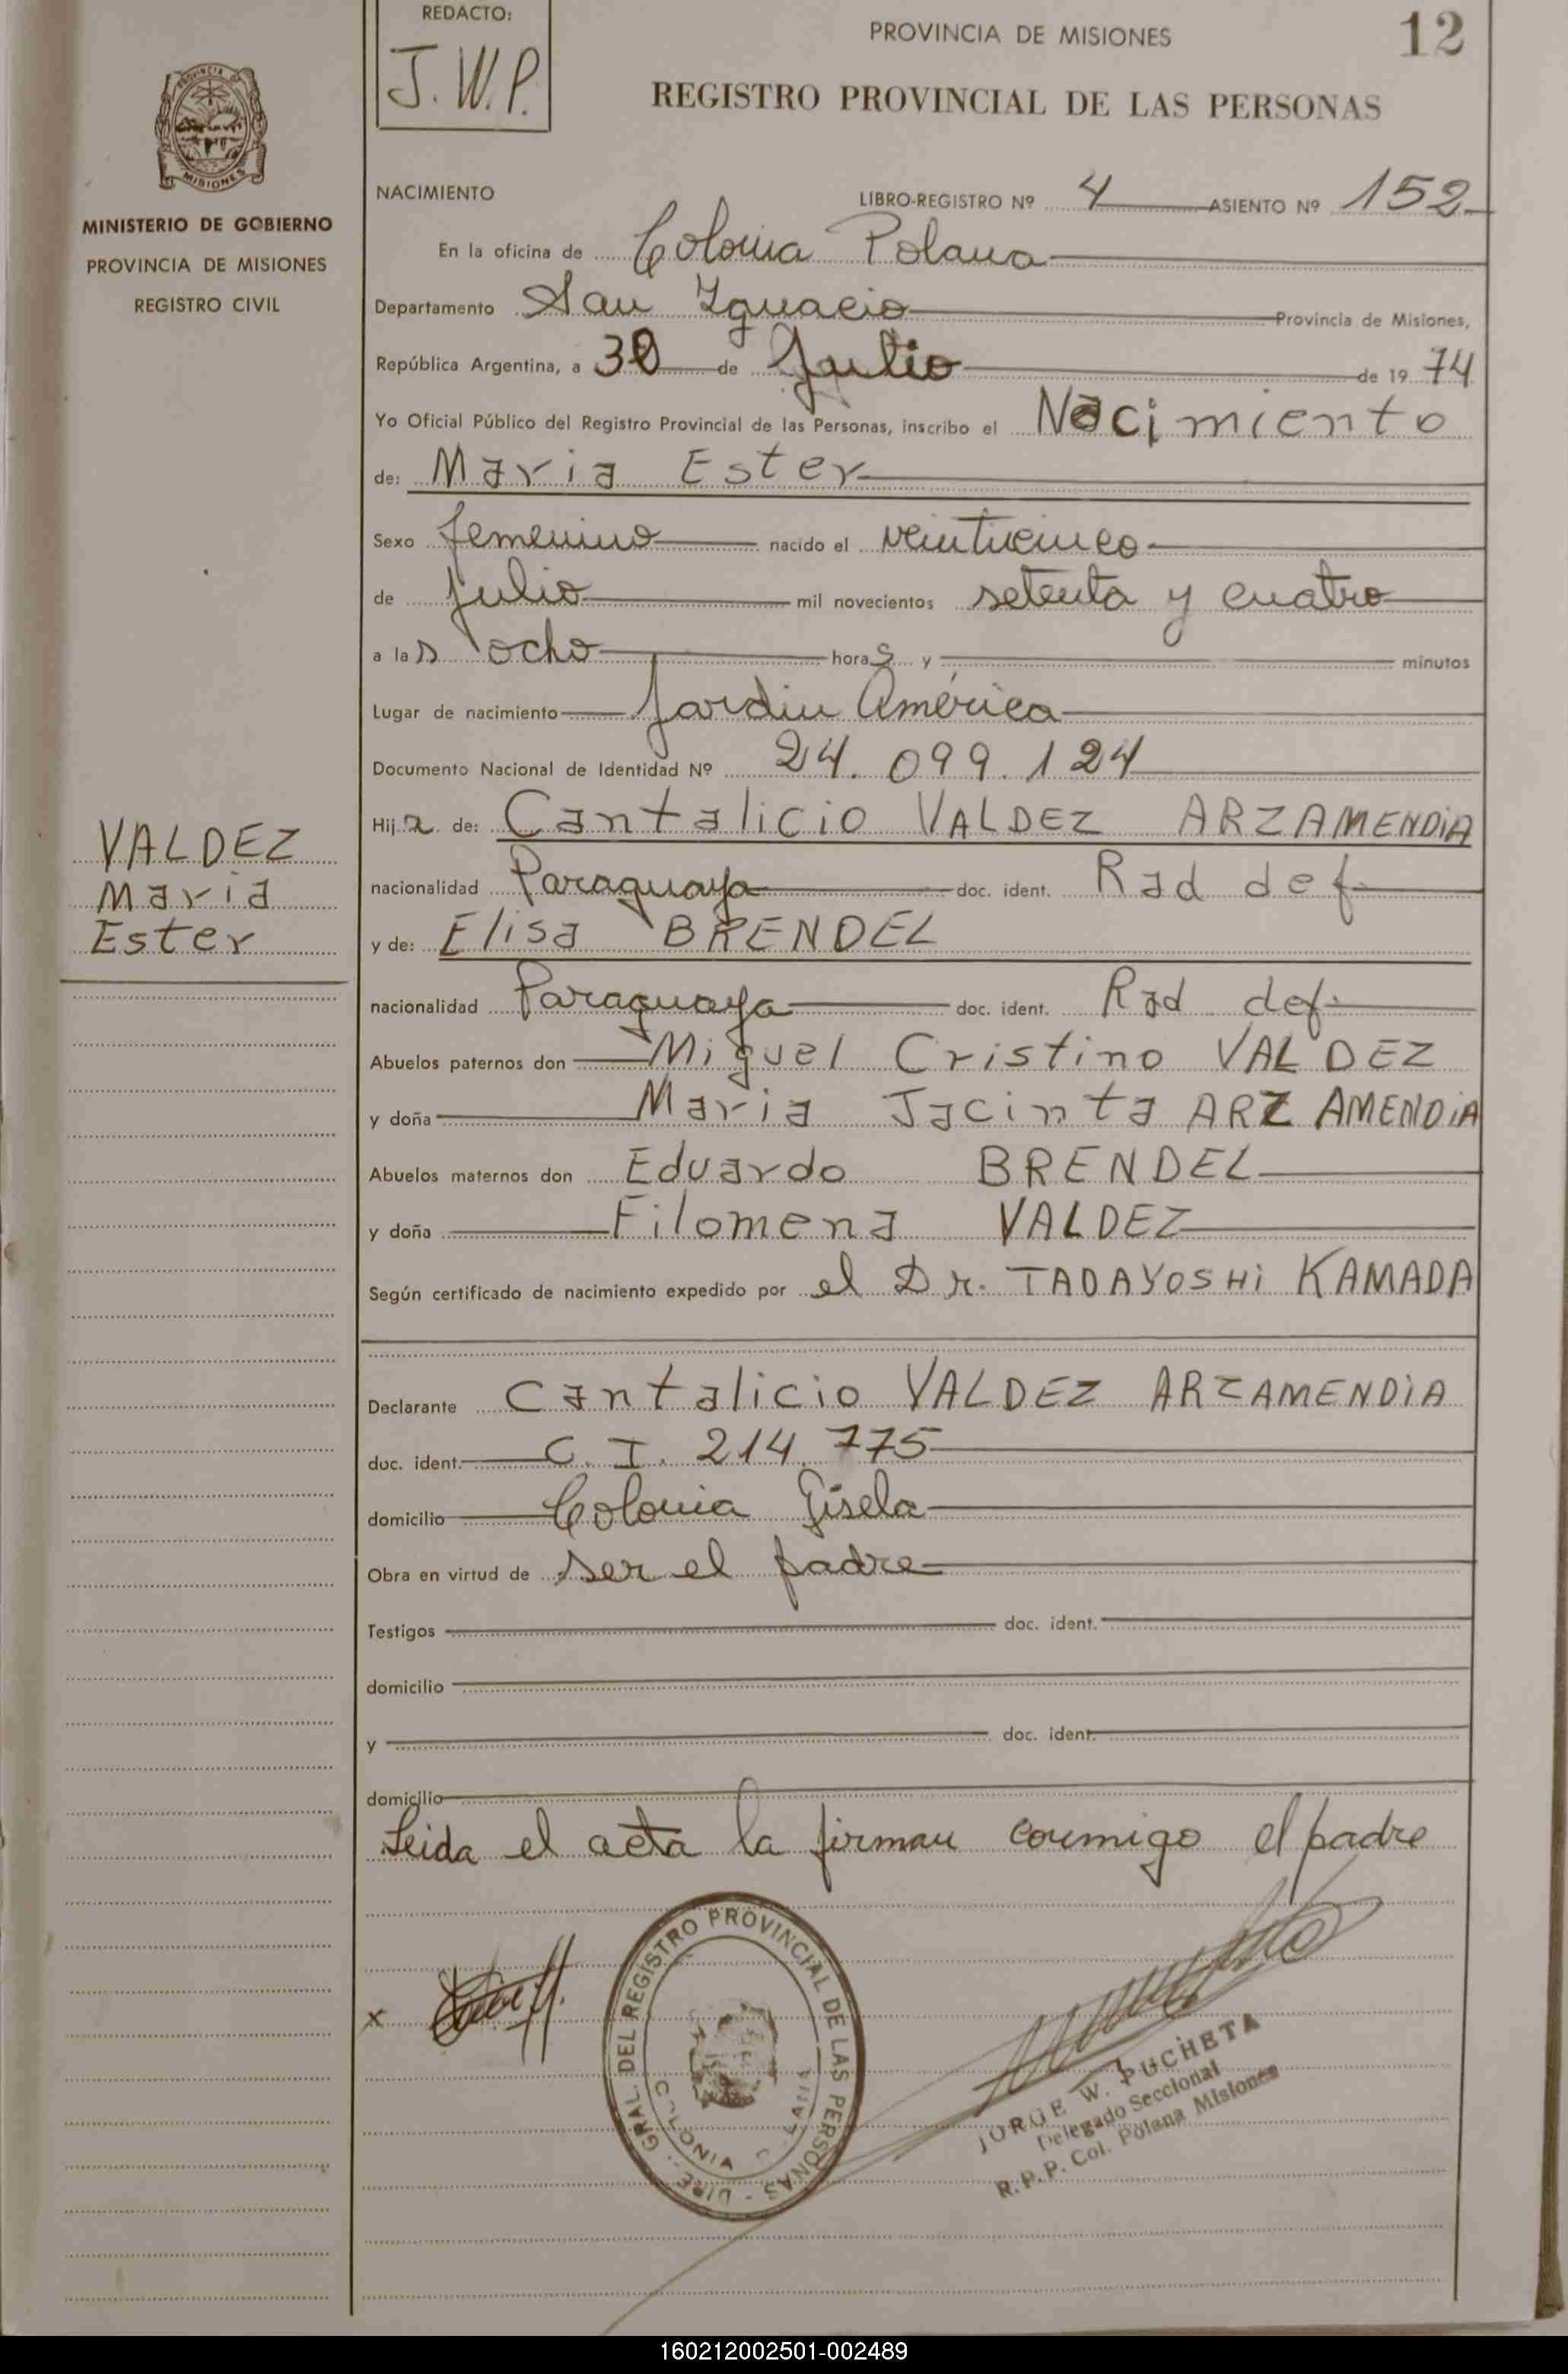 REDACTO:
J.W.P.
PROVINCIA DE MISIONES
12
REGISTRO PROVINCIAL DE LAS PERSONAS
PROVINCIA DE
MISIONES
MINISTERIO DE GOBIERNO
PROVINCIA DE MISIONES
REGISTRO CIVIL
NACIMIENTO LIBRO-REGISTRO Nº 4 ASIENTO Nº 152
En la oficina de Colonia Polana
Departamento San Ignacio Provincia de Misiones,
República Argentina, a 30 de Julio de 1974
Yo Oficial Público del Registro Provincial de las Personas, inscribo el Nacimiento
de: Maria Ester
Sexo femenino nacido el veinticinco
de julio mil novecientos setenta y cuatro
a las ocho horas y minutos
Lugar de nacimiento Jardin América
Documento Nacional de Identidad Nº 24.099.124
Hija de: Cantalicio VALDEZ ARZAMENDiA
nacionalidad Paraguaya doc. ident. Rad def
y de: Elisa BRENDEL
nacionalidad Paraguaya doc. ident. Rad def.
Abuelos paternos don Miguel Cristino VALDEZ
y doña Maria Jacinta ARZAMENDiA
Abuelos maternos don Eduardo BRENDEL
y doña Filomena VALDEZ
Según certificado de nacimiento expedido por el Dr. TADAYOSHi KAMADA
Declarante Cantalicio VALDEZ ARZAMENDiA
doc. ident. C.I. 214.775
domicilio Colonia Gisela
Obra en virtud de ser el padre
Testigos doc. ident.
domicilio
y doc. ident.
domicilio
Leida el acta la firman conmigo el padre
VALDEZ
Maria
Ester
x
DIRE. GRAL. DEL REGISTRO PROVINCIAL DE LAS PERSONAS
JORGE W. PUCHETA
Delegado Seccional
R.P.P. Col. Polana Misiones
160212002501-002489